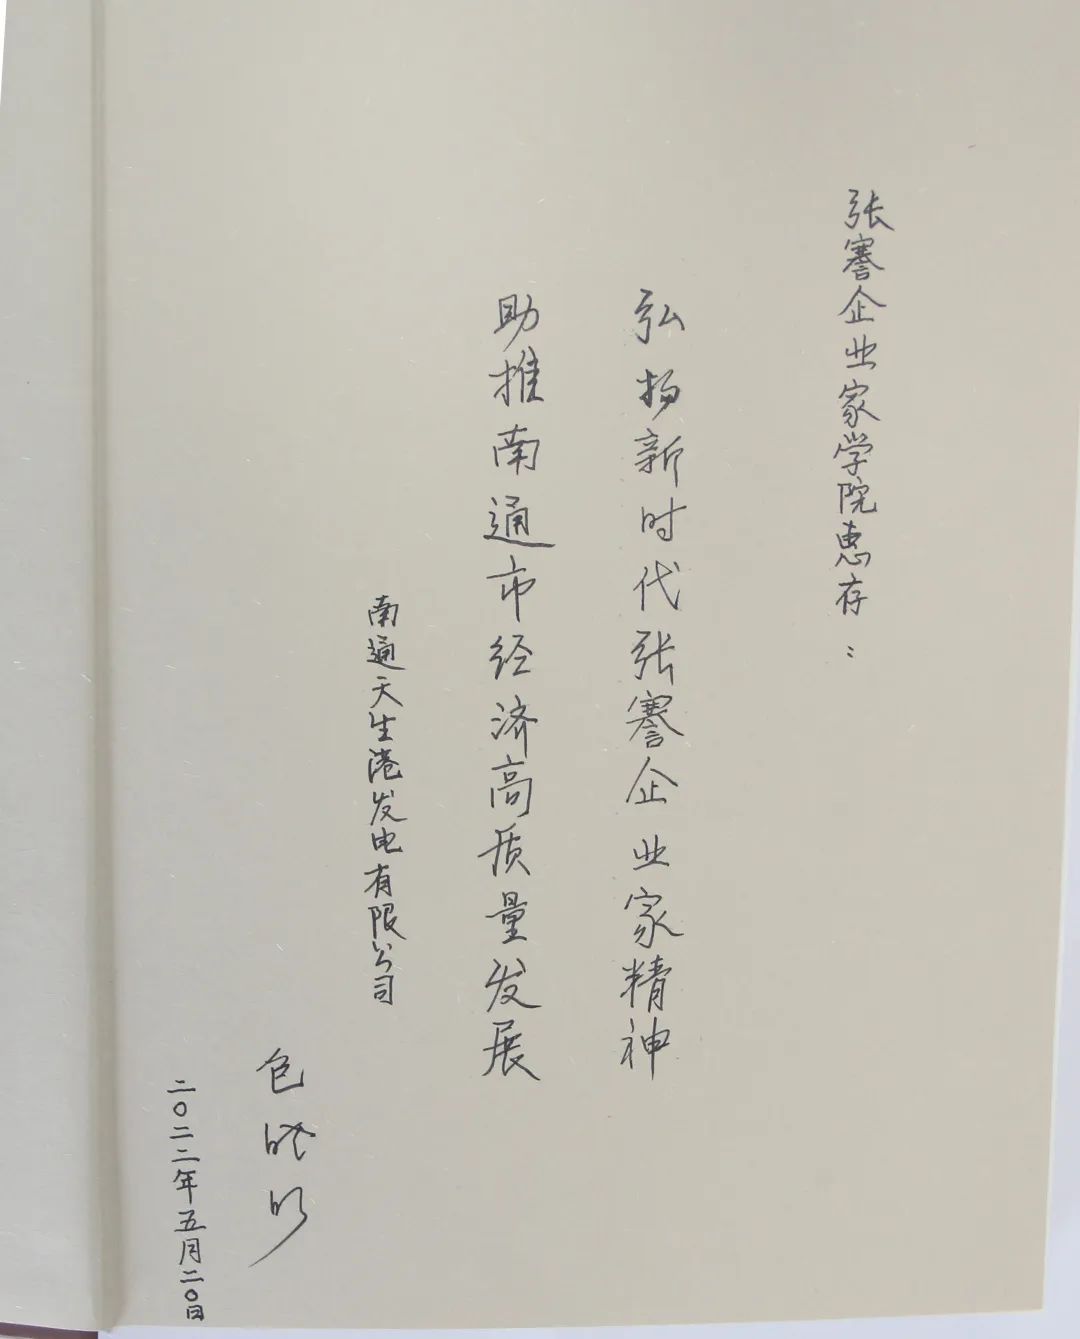 张謇企业家学院惠存：
弘扬新时代张謇企业家精神
助推南通市经济高质量发展
南通天生港发电有限公司
包晓明
二〇二二年五月二〇日